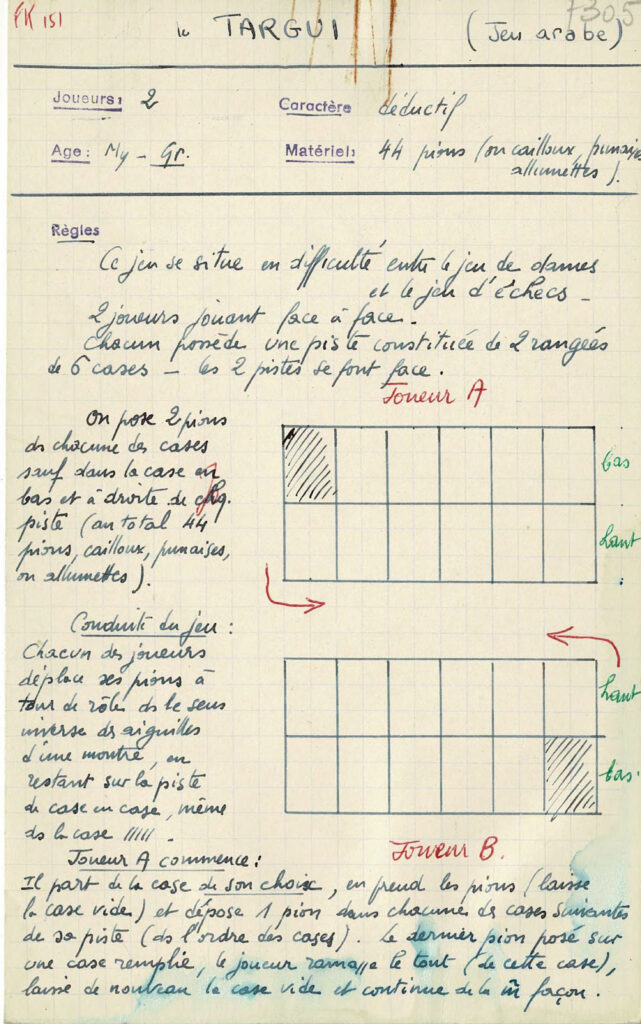 FK 151
7305
le TARGUI (Jeu arabe)
Joueurs: 2 Caractère déductif
Age: My - Gr. Matériel: 44 pions (ou cailloux, punaises
allumettes).
Règles
Ce jeu se situe en difficulté entre le jeu de dames
et le jeu d'échecs -
2 joueurs jouant face à face.
Chacun possède une piste constituée de 2 rangées
de 6 cases - les 2 pistes se font face.
Joueur A
On pose 2 pions
ds chacune des cases
sauf dans la case en
bas et à droite de chq.
piste (au total 44
pions, cailloux, punaises,
ou allumettes).
bas
haut
Conduite du jeu :
Chacun des joueurs
déplace ses pions à
tour de rôle ds le sens
inverse des aiguilles
d'une montre, en
restant sur la piste
de case en case, même
ds la case /////.
haut
bas.
Joueur B.
Joueur A commence :
Il part de la case de son choix, en prend les pions (laisse
la case vide) et dépose 1 pion dans chacune des cases suivantes
de sa piste (ds l'ordre des cases). Le dernier pion posé sur
une case remplie, le joueur ramasse le tout (de cette case),
laisse de nouveau la case vide et continue de la m̂ façon.